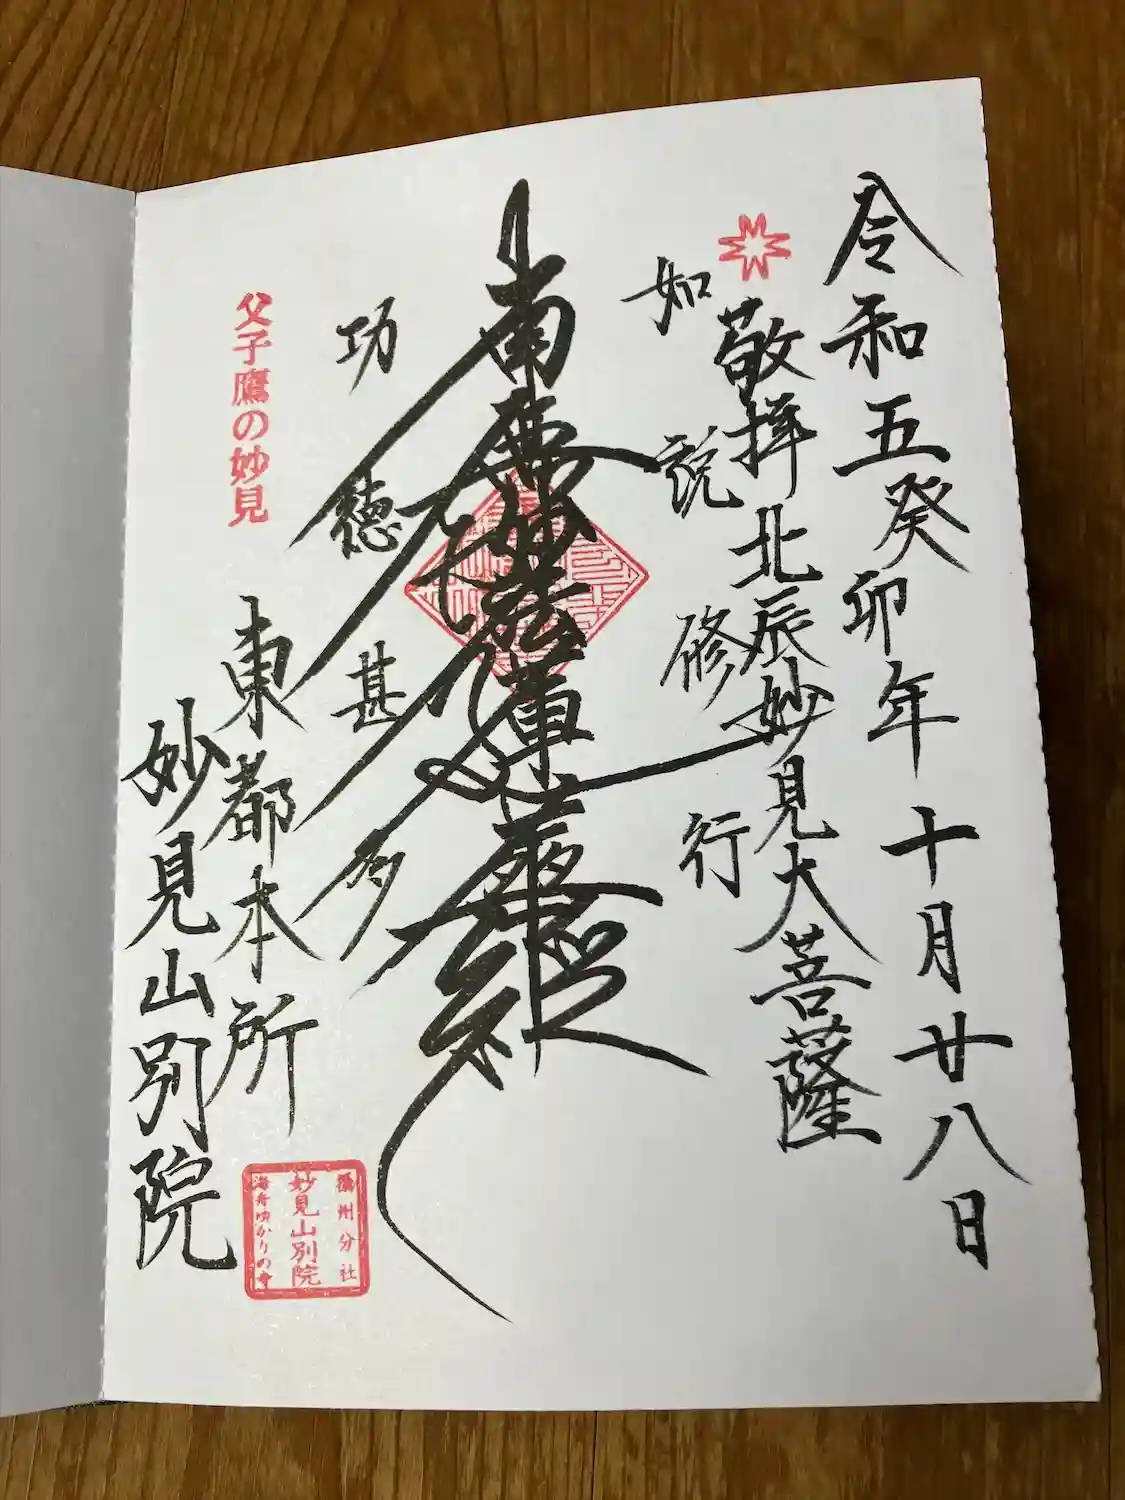 令和五癸卯年十月廿八日
敬拝北辰妙見大菩薩
如説修行
南無妙法蓮華経
功徳甚多
父子鷹の妙見
東都本所
妙見山別院
妙見山別院
海舟ゆかりの寺